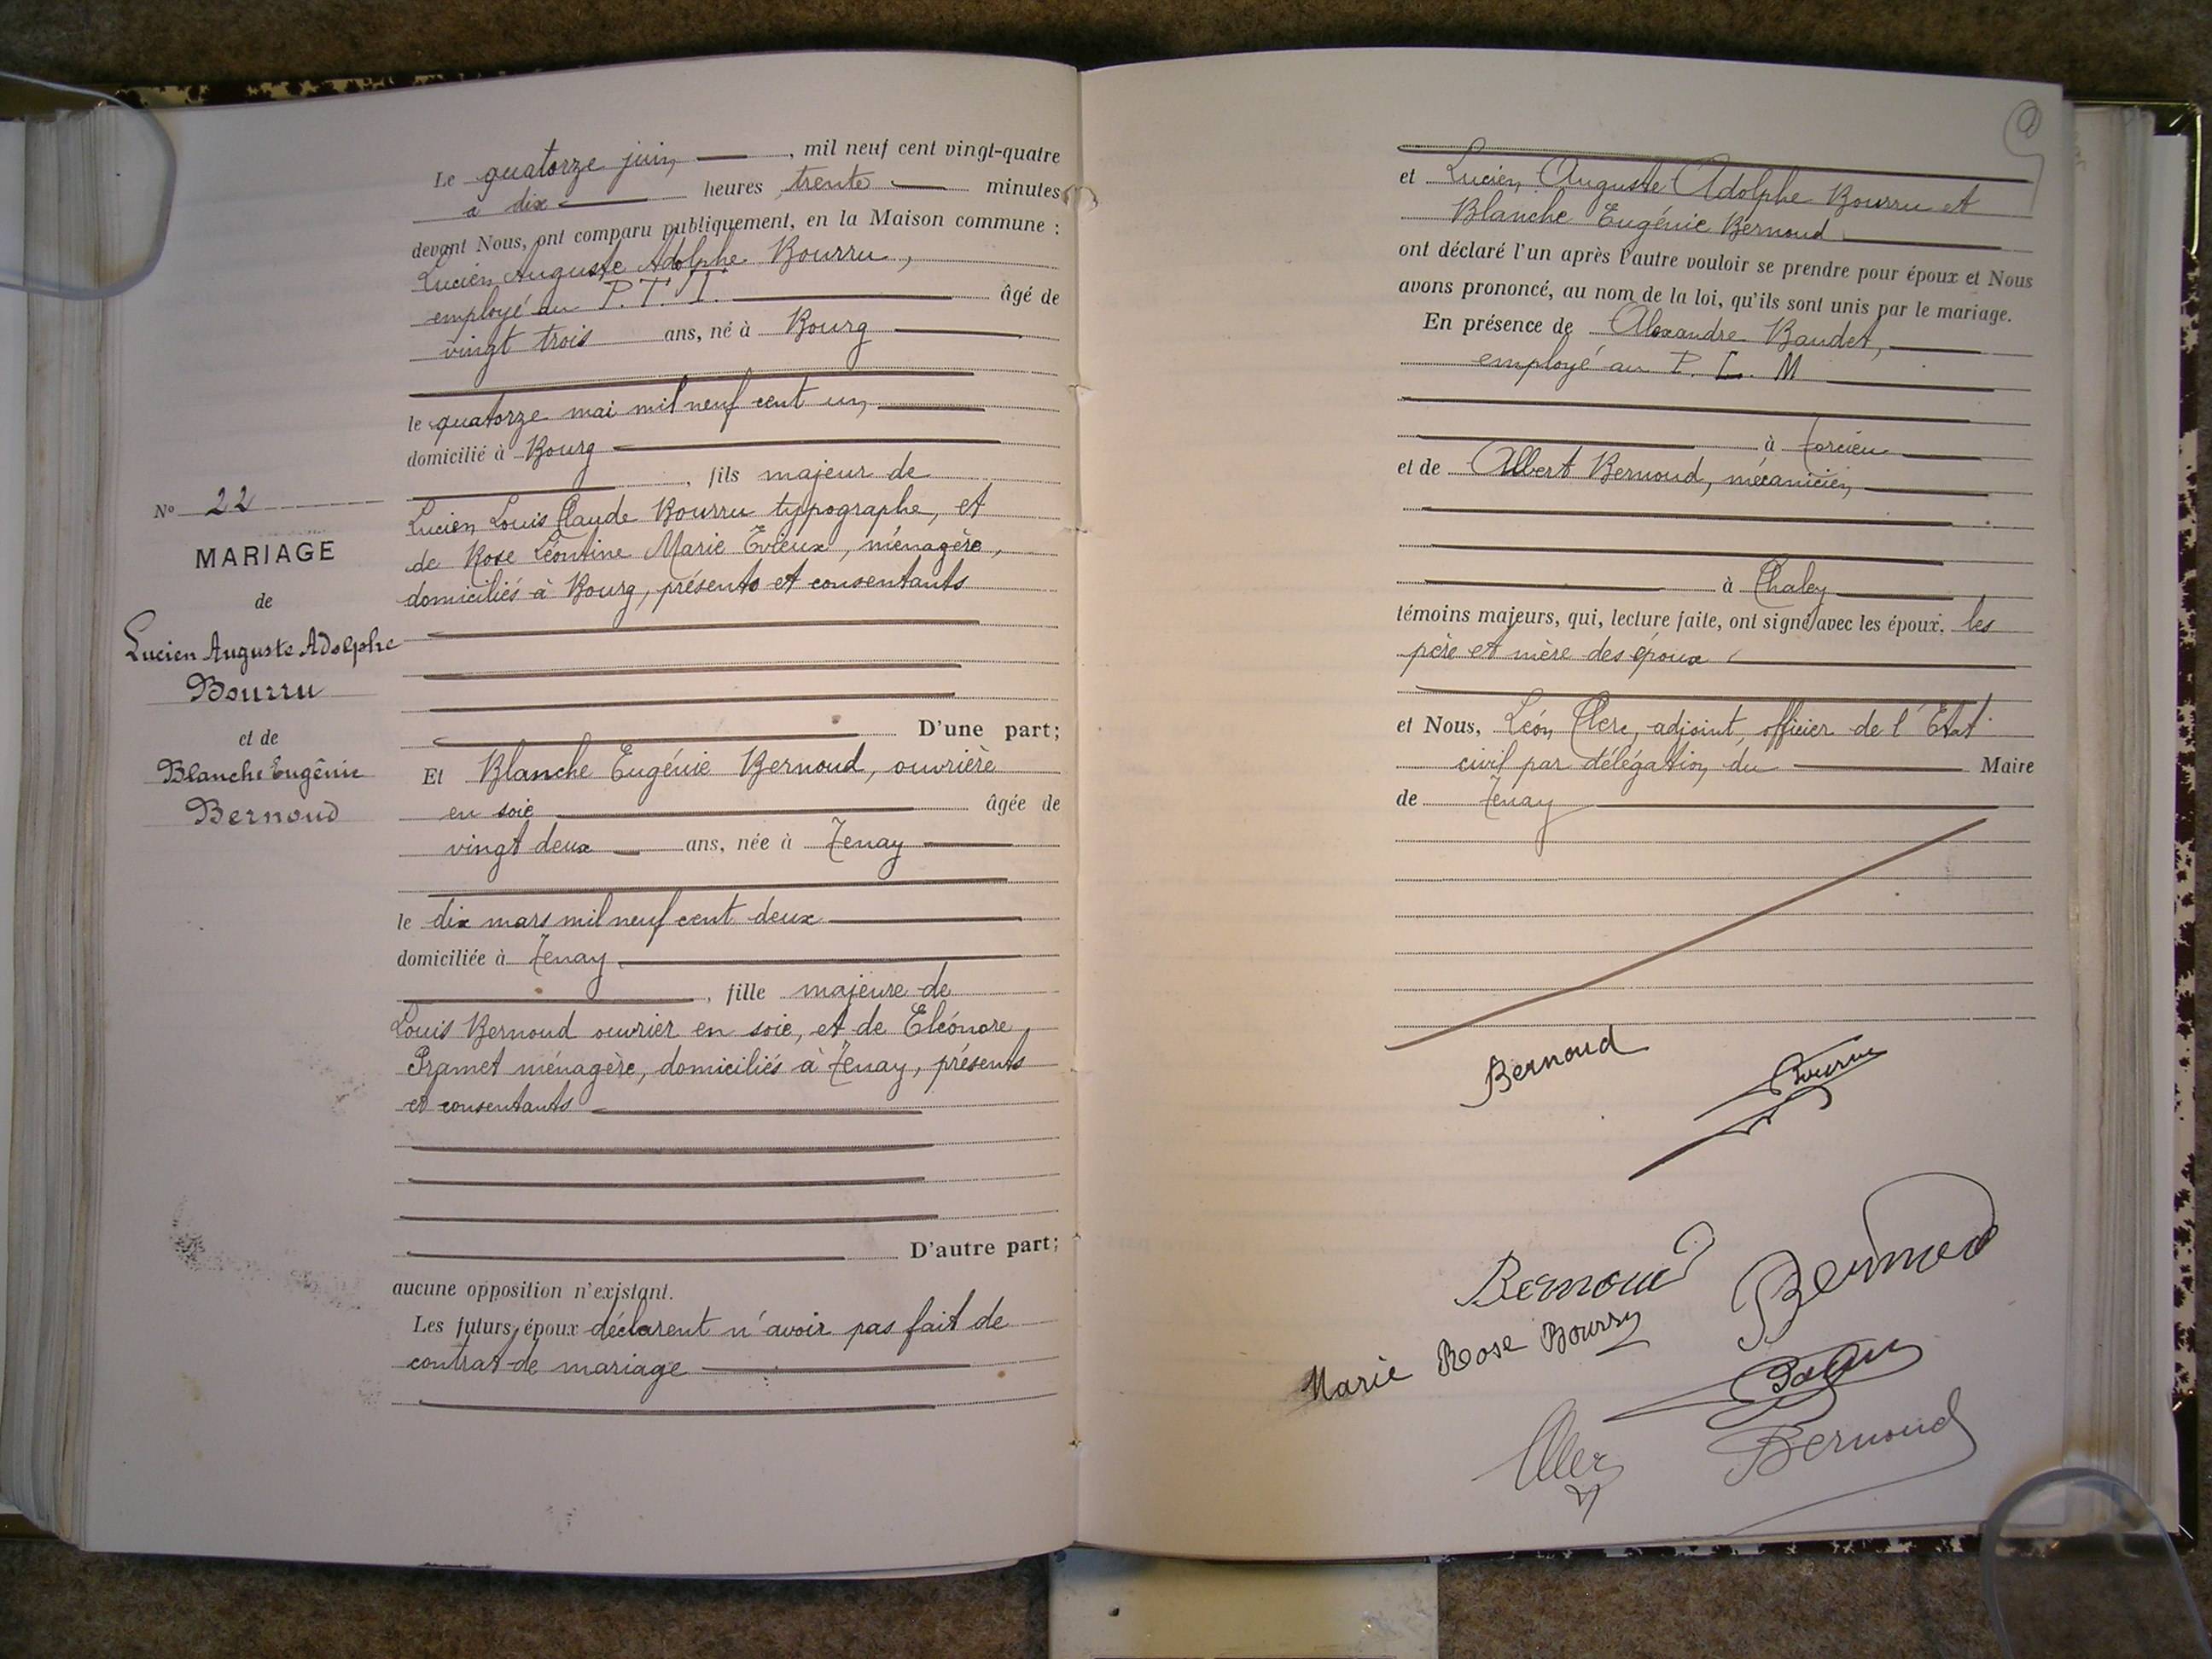 Le quatorze juin, mil neuf cent vingt-quatre
à dix heures trente minutes
devant Nous, ont comparu publiquement, en la Maison commune :
Lucien Auguste Adolphe Bourru,
employé au P.T.T. âgé de
vingt trois ans, né à Bourg
le quatorze mai mil neuf cent un,
domicilié à Bourg
, fils majeur de
Lucien Louis Claude Bourru typographe, et
de Rose Léontine Marie Evieux, ménagère,
domiciliés à Bourg, présents et consentants
D'une part;
Et Blanche Eugénie Bernoud, ouvrière
en soie âgée de
vingt deux ans, née à Tenay
le dix mars mil neuf cent deux
domiciliée à Tenay
, fille majeure de
Louis Bernoud ouvrier en soie, et de Eléonore
Pramet ménagère, domiciliés à Tenay, présents
et consentants
D'autre part;
aucune opposition n'existant.
Les futurs époux déclarent n'avoir pas fait de
contrat de mariage
No 22
MARIAGE
de
Lucien Auguste Adolphe
Bourru
et de
Blanche Eugénie
Bernoud
et Lucien Auguste Adolphe Bourru et
Blanche Eugénie Bernoud
ont déclaré l'un après l'autre vouloir se prendre pour époux et Nous
avons prononcé, au nom de la loi, qu'ils sont unis par le mariage.
En présence de Alexandre Baudet,
employé au P. L. M
à Torcieu
et de Albert Bernoud, mécanicien,
à Chaley
témoins majeurs, qui, lecture faite, ont signé avec les époux, les
père et mère des époux
et Nous, Léon Clerc, adjoint, officier de l'Etat
civil par délégation du Maire
de Tenay
Bernoud
Bourru
Bernoud
Bernoud
Marie Rose Bourru
Bernoud